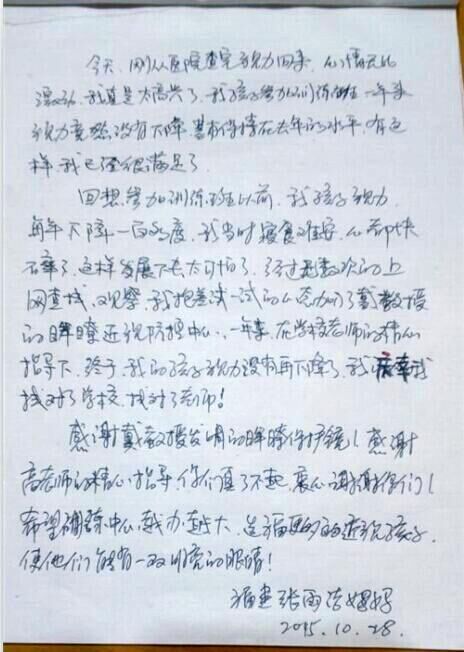 今天,刚从医院查完视力回来,心情无比
激动,我真是太高兴了,我孩子参加训练班一年来
视力竟然没有下降,基本保持在去年的水平,有这
样,我已经很满足了.
回想参加训练班以前,我孩子视力
每年下降一百多度,我当时寝食难安,心都快
碎了,这样发展下去太可怕了.经过无数次的上
网查找,观察,我抱着试一试的心态加了戴教授
的眸瞭近视防控中心,一年来,在学校老师的精心
指导下,终于,我的孩子视力没有再下降了,我庆幸我
找对了学校,找对了老师!
感谢戴教授发明的眸瞭保护镜!感谢
高老师的精心指导,你们真了不起,衷心谢谢你们!
希望调练中心越办越大,造福更多的近视孩子,
使他们能有一双明亮的眼睛!
福建张雨洁妈妈
2015.10.28.